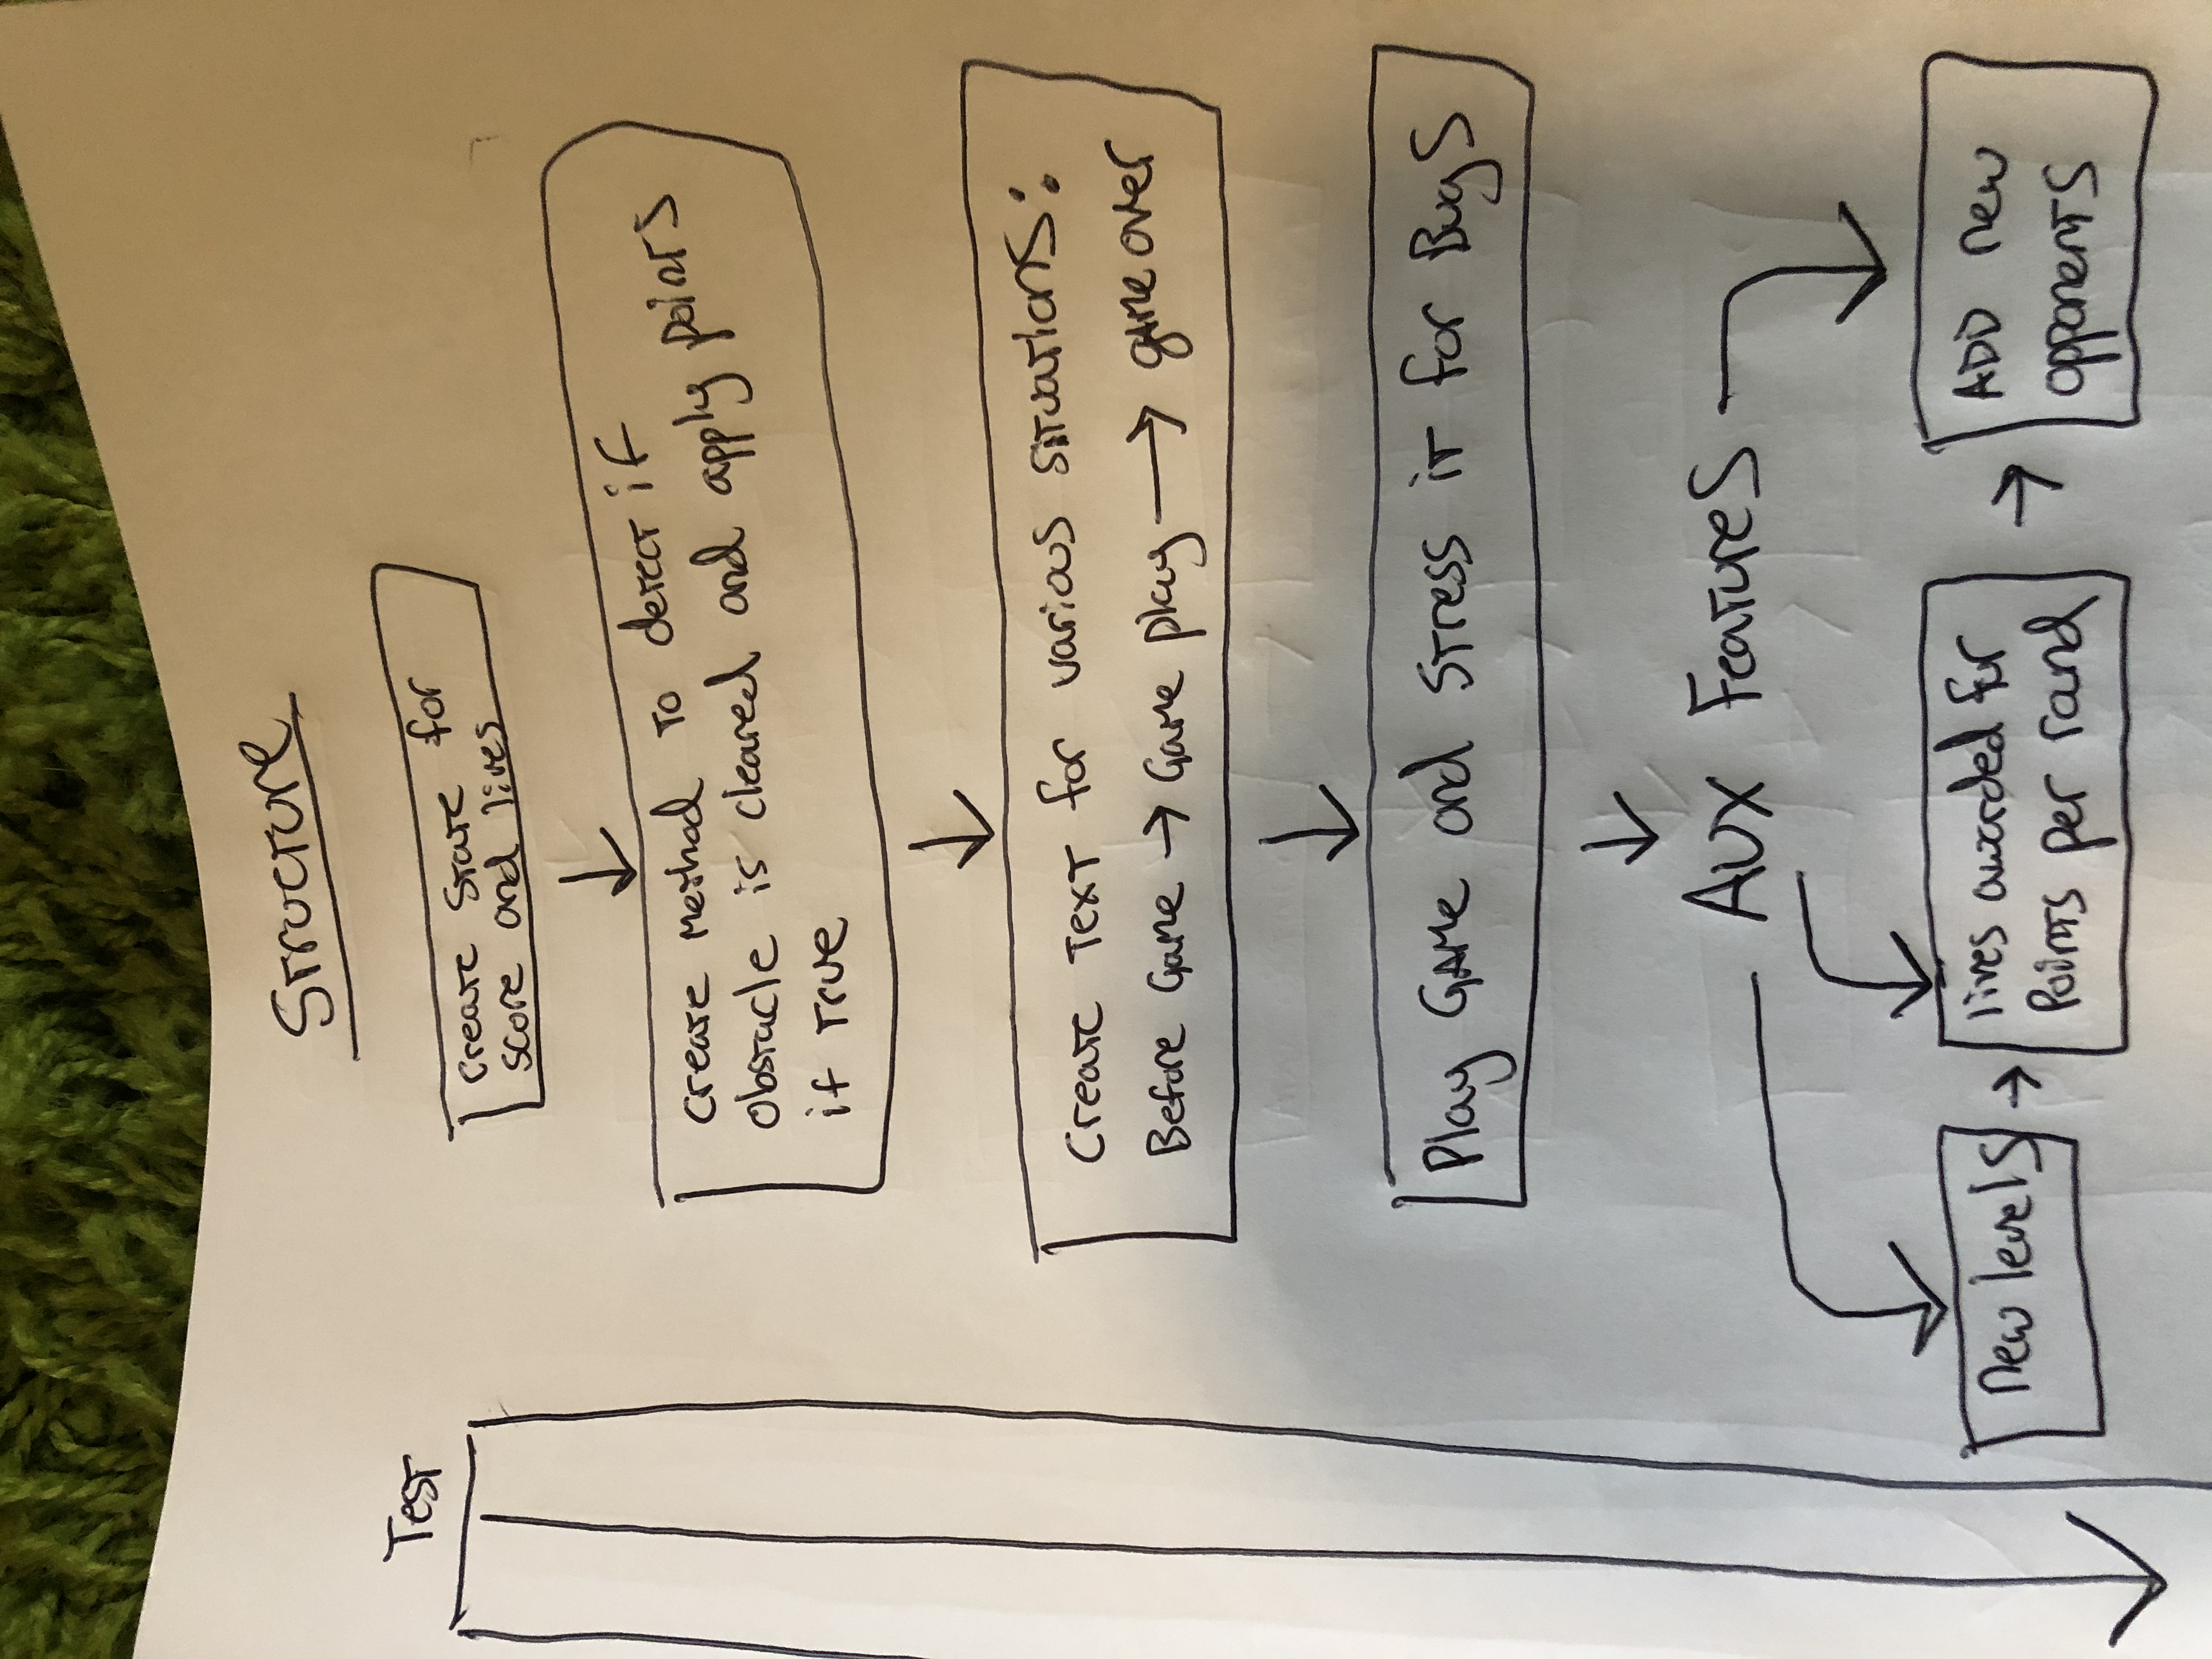 Structure
Test
Create State for
score and lives
Create Method to detect if
Obstacle is cleared and apply points
if True
Create Text for various situations:
Before Game → Game play → game over
Play Game and stress it for Bugs
AUX Features
new levels →
lives awarded for
Points per round →
ADD new
opponents